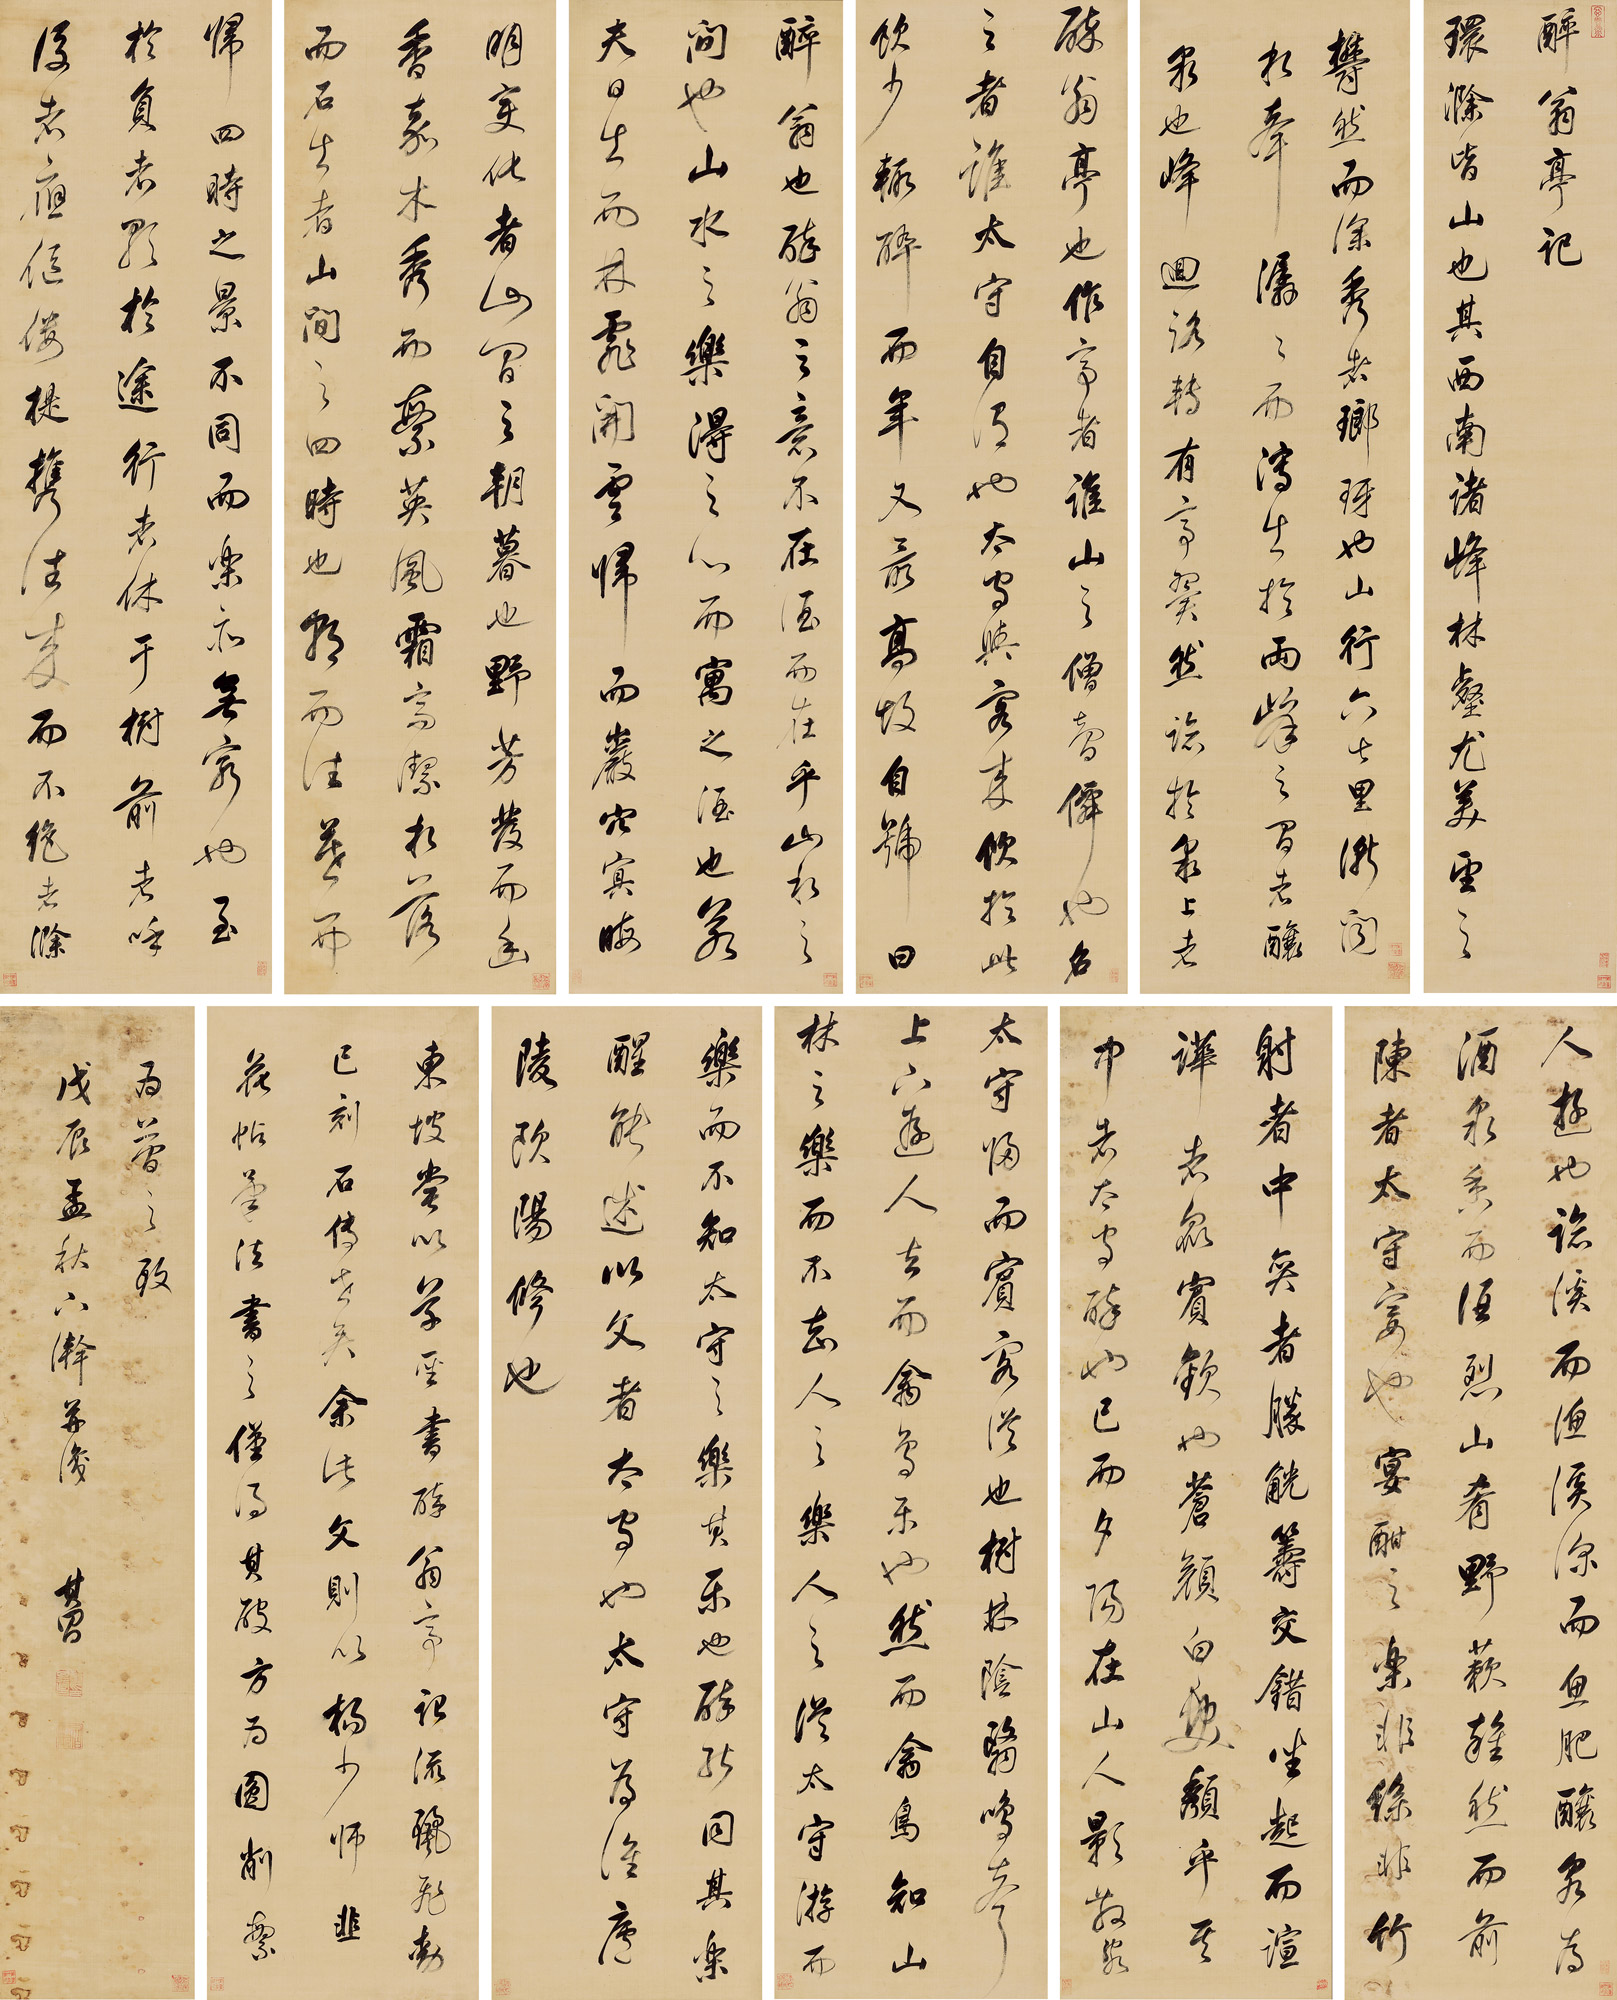 醉翁亭記
環滁皆山也其西南諸峰林壑尤美望之
欝然而深秀者瑯琊也山行六七里漸聞
水聲潺〻而瀉出於兩峯之間者釀
泉也峰迴路轉有亭翼然臨於泉上者
醉翁亭也作亭者誰山之僧智僊也名
之者誰太守自謂也太守與客来飲於此
飲少輙醉而年又最高故自號曰
醉翁也醉翁之意不在酒而在乎山水之
間也山水之樂得之心而寓之酒也若
夫日出而林霏開雲歸而巖穴冥晦
明变化者山間之朝暮也野芳發而幽
香嘉木秀而繁英風霜高潔水落
而石出者山間之四時也朝而往暮而
歸四時之景不同而樂亦無窮也至
於負者歌於途行者休于樹前者呼
後者應傴僂提攜往来而不絶者滁
人遊也臨溪而漁溪深而魚肥釀泉為
酒泉香而酒烈山肴野蔌雜然而前
陳者太守宴也宴酣之樂非絲非竹
射者中奕者勝觥籌交錯坐起而諠
譁者衆賓歡也蒼顔白髮頹乎其
中者太守醉也已而夕陽在山人影散亂
太守歸而賓客從也樹林陰翳鳴聲
上下遊人去而禽鳥樂也然而禽鳥知山
林之樂而不知人之樂人之從太守游而
樂而不知太守之樂其樂也醉能同其樂
醒能述以文者太守也太守為誰廬
陵欧陽修也
東坡嘗以草聖書醉翁亭記流麗飛動
已刻石傳世矣余此文則以楊少师韭
花帖筆法書之僅得其破方为圓削繁
为簡之致
戊辰孟秋六澣并識 其昌